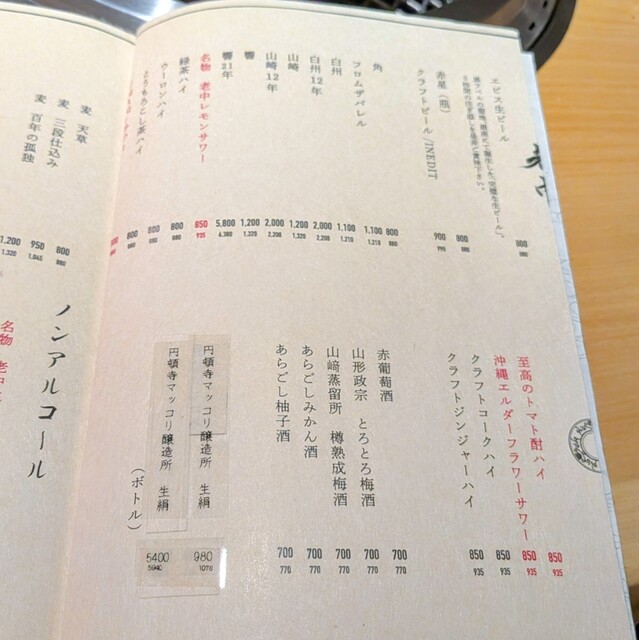 エビス生ビール
800
880
赤星（瓶）
800
880
クラフトビール/INEDIT
900
990
角
800
880
フロムザバレル
1,100
1,210
白州
1,100
1,210
白州12年
2,000
2,200
山崎
1,200
1,320
山崎12年
2,000
2,200
響
1,200
1,320
響21年
5,800
6,380
名物 老中レモンサワー
850
935
緑茶ハイ
800
880
ウーロンハイ
800
880
とうもろこし茶ハイ
800
880
至高のトマト酎ハイ
850
935
沖縄エルダーフラワーサワー
850
935
クラフトコークハイ
850
935
クラフトジンジャーハイ
850
935
赤葡萄酒
700
770
山形政宗 とろとろ梅酒
700
770
山﨑蒸留所 樽熟成梅酒
700
770
あらごしみかん酒
700
770
あらごし柚子酒
700
770
円頓寺マッコリ醸造所 生絹
980
1078
円頓寺マッコリ醸造所 生絹
（ボトル）
5400
5940
麦 天草
800
880
麦 三段仕込み
950
1,045
麦 百年の孤独
1,200
1,320
ノンアルコール
名物